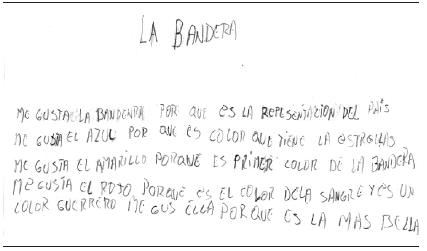 LA BANDERA
ME GUSTA LA BANDENRA POR QUE ES LA REPRESENTACION DEL PAÍS
ME GUSTA EL AZUL POR QUE ES COLOR QUE TIENE LA ESTRELLAS
ME GUSTA EL AMARILLO PORQUE ES PRIMER COLOR DE LA BANDERA
ME GUSTA EL ROJO PORQUE ES EL COLOR DE LA SANGRE Y ES UN
COLOR GUERRERO ME GUS ELLA PORQUE ES LA MAS BELLA